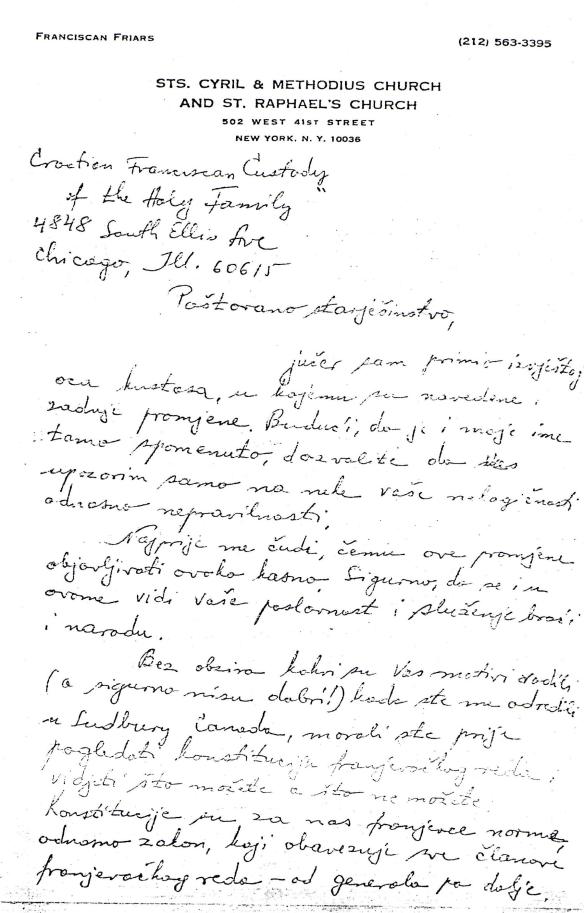 FRANCISCAN FRIARS
(212) 563-3395
STS. CYRIL & METHODIUS CHURCH
AND ST. RAPHAEL'S CHURCH
502 WEST 41ST STREET
NEW YORK, N. Y. 10036
Croatian Franciscan Custody
of the Holy Family "
4848 South Ellis Ave
Chicago, Ill. 60615
Poštovano starješinstvo,
jučer sam primio izvještaj
oca kustosa, u kojemu su navedene i
zadnje promjene. Budući, da je i moje ime
tamo spomenuto, dozvolite da
upozorim samo na neke vaše nelogičnosti
odnosno nepravilnosti.
Najprije me čudi, čemu ove promjene
objavljivati ovako kasno. Sigurno, da se i u
ovome vidi vaše poslovnost i služenje braći
i narodu.
Bez obzira kakvi su Vas motivi vodili
(a sigurno nisu dobri!) kada ste me odredili
u Sudbury Canada, morali ste prije
pogledati konstitucije franjevačkog reda i
vidjeti što možete a što ne možete.
Konstitucije su za nas franjevce norma,
odnosno zakon, koji obavezuje sve članove
franjevačkog reda - od generala pa dalje.